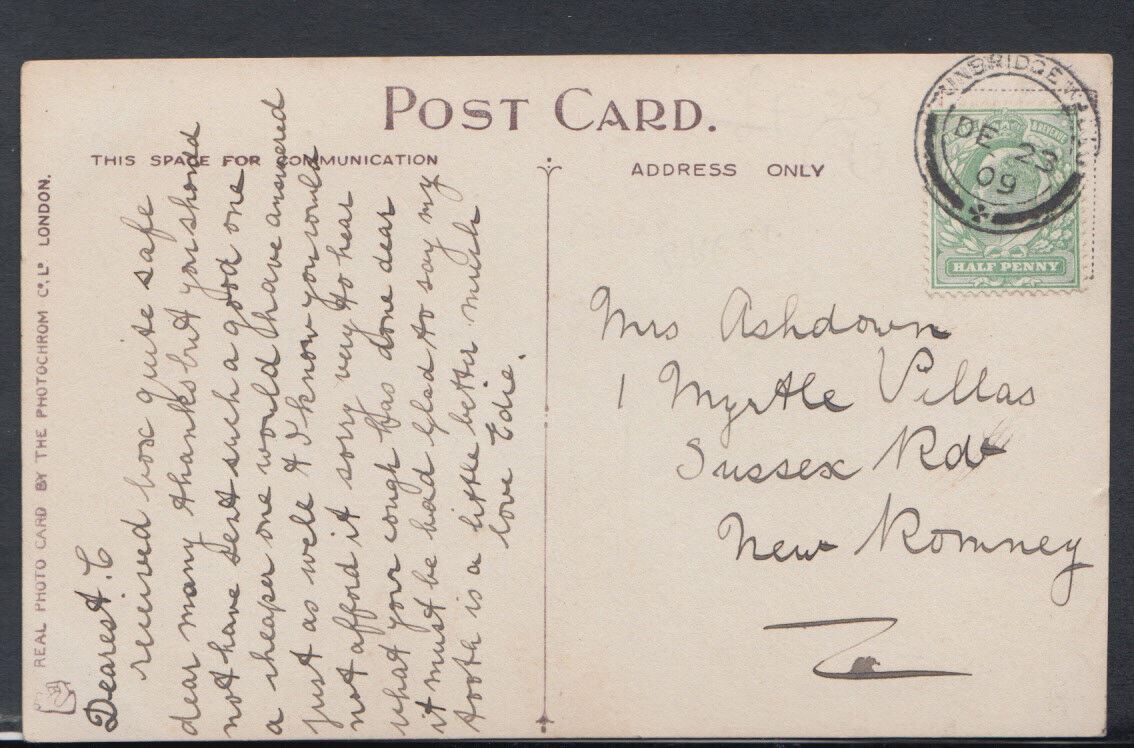 POST CARD.
THIS SPACE FOR COMMUNICATION
ADDRESS ONLY
REAL PHOTO CARD BY THE PHOTOCHROM Co. Ld. LONDON.
TUNBRIDGE WELLS
DE 23
09
HALF PENNY
Dearest. C
received box quite safe
dear many thanks but you should
not have sent such a good one
a cheaper one would have answered
just as well & I know you would
not afford it sorry very to hear
what your cough has done dear
it must be bad glad to say my
tooth is a little better much
love Edie.
Mrs Ashdown
1 Myrtle Villas
Sussex Rd
New Romney